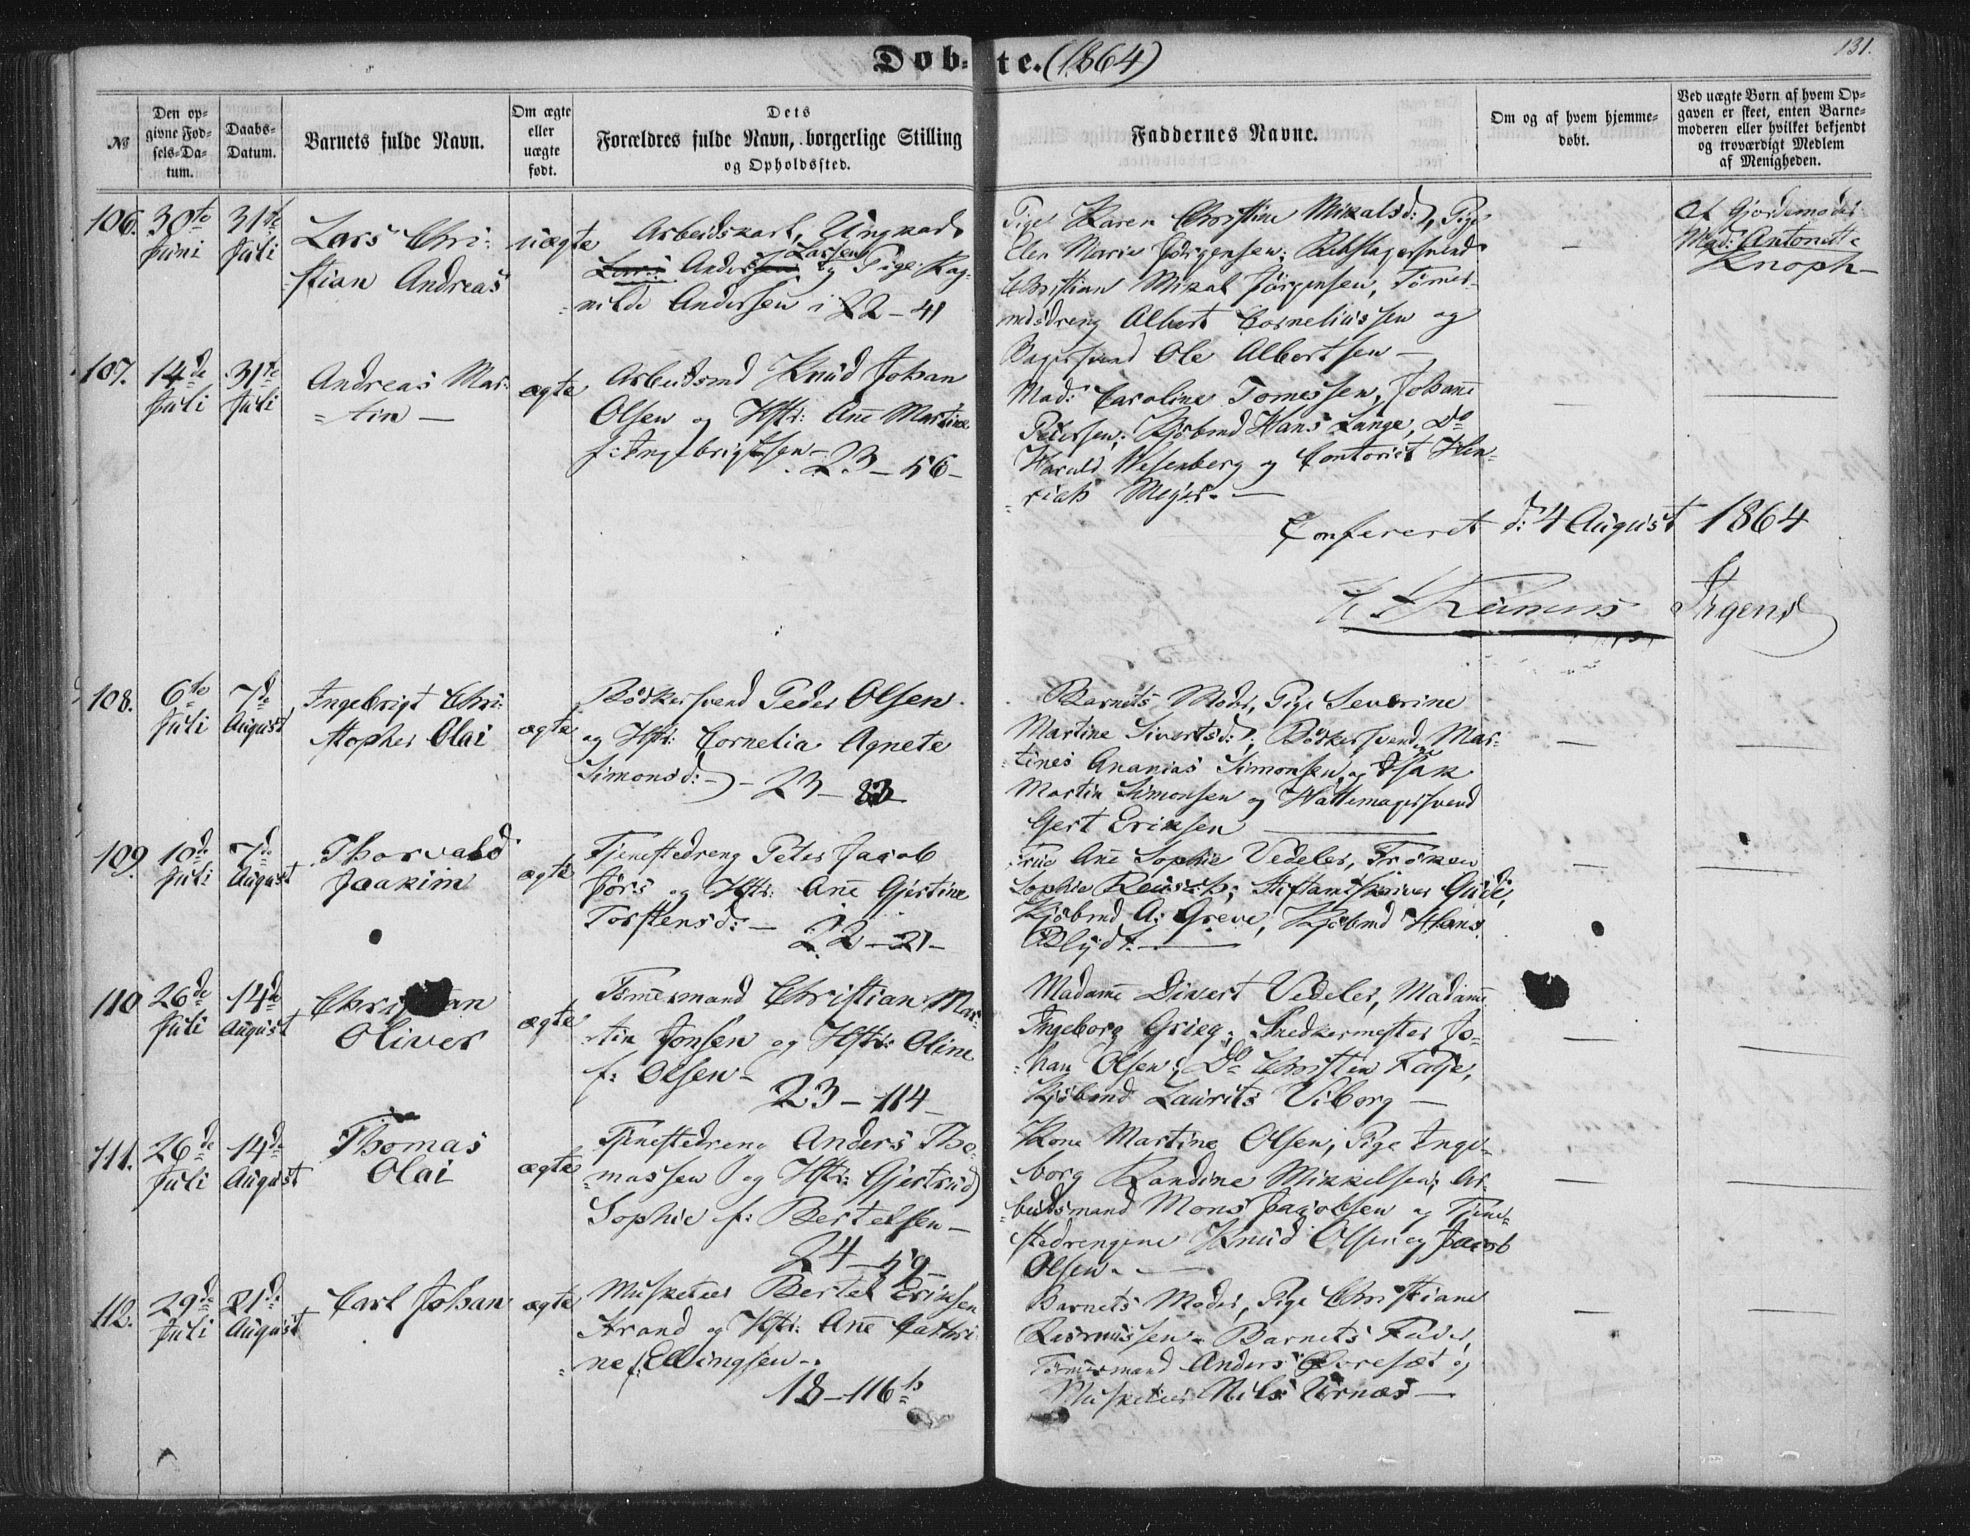 Døb-te. (1864)
131.
№
Den op-
givne Fød-
sels-Da-
tum.
Daabs-
Datum.
Barnets fulde Navn.
Om ægte
eller
uægte
født.
Dets
Forældres fulde Navn, borgerlige Stilling
og Opholdssted.
Faddernes Navne.
Om og af hvem hjemme-
døbt.
Ved uægte Børn af hvem Op-
gaven er skeet, enten Barne-
moderen eller hvilket bekjendt
og troværdigt Medlem
af Menigheden.
106.
30te
Juni
31te
Juli
Lars Chri-
stian Andreas
uægte
Arbeidskarl, Ungkarl
Lars Andersen Larsen og Pige Rag-
nilde Andersen i 22-41
Pige Karen Christine Mikalsd:, Pige
Elen Marie Jörgensen; Rebslagersvend
Christian Mikal Jörgensen, Tömer-
mdsdreng Albert Corneliussen og
Bagersvend Ole Albertsen —
—
Af Gjordemoder
Mad: Antonette
Knoph —
107.
14de
Juli
31te
Juli
Andreas Mar-
tin —
ægte
Arbeidsmd Knud Johan
Olsen og Hstr: Ane Martine
f: Ingebrigtsen — 23-56-
Mad: Caroline Tomessen, Johane
Petersen; Kjöbmd Hans Lange, Do
Harald Wesenberg og Contorist Hen-
rich Meyer. —
Confereret d: 4 August 1864
Irgens
108.
6te
Juli
7de
August
Ingebrigt Chri-
stopher Olai
ægte
Bödkersvend Peder Olsen
og Hstr: Cornelia Agnete
Simonsd: - 23-83
Barnets Moder, Pige Severine
Martine Sivertsd:; Bödkersvend Mar-
tines Ananias Simonsen, og Isak
Martin Simonsen og Hattemagersvend
Gert Eriksen —
109.
10de
Juli
7de
August
Thorvald
Joakim
ægte
Tjenestedreng Peter Jacob
Jörs og Hstr: Ane Gjertine
Torstensd: — 22-21-
Frue Ane Sophie Vedeler, Fröken
Sophie Reusch; Stiftamtskriver Gude,
Kjöbmd A: Greve, Kjöbmd Hans
Blydt. —
110
26de
Juli
14de
August
Christian
Oliver
ægte
Tömermand Christian Mar-
tin Jonsen og Hstr: Oline
f: Olsen - 23-114-
Madame Divert Vedeler, Madame
Ingeborg Grieg; Snedkermester Jo-
han Olsen; Do Christen Faje,
Kjöbmd Laurits Viborg —
111.
26de
Juli
14de
August
Thomas
Olai
ægte
Tjenestedreng Anders Tho-
massen og Hstr: Gjertrud
Sophie f: Bertelsen —
24-59-
Kone Martine Olsen, Pige Inge-
borg Randine Mikkelsen; Ar-
beidsmand Mons Jacobsen og Tjene-
stedrengene Knud Olsen og Jacob
Olsen. —
112.
29de
Juli
21de
August
Carl Johan
ægte
Musketeer Bertel Eriksen
Strand og Hstr: Ane Cathri-
ne f: Ellingsen -.
18-116b
Barnets Moder, Pige Christiane
Rasmussen - Barnets Fader,
Tömermand Anders Öresæt og
Musketeer Nils Urnæs —